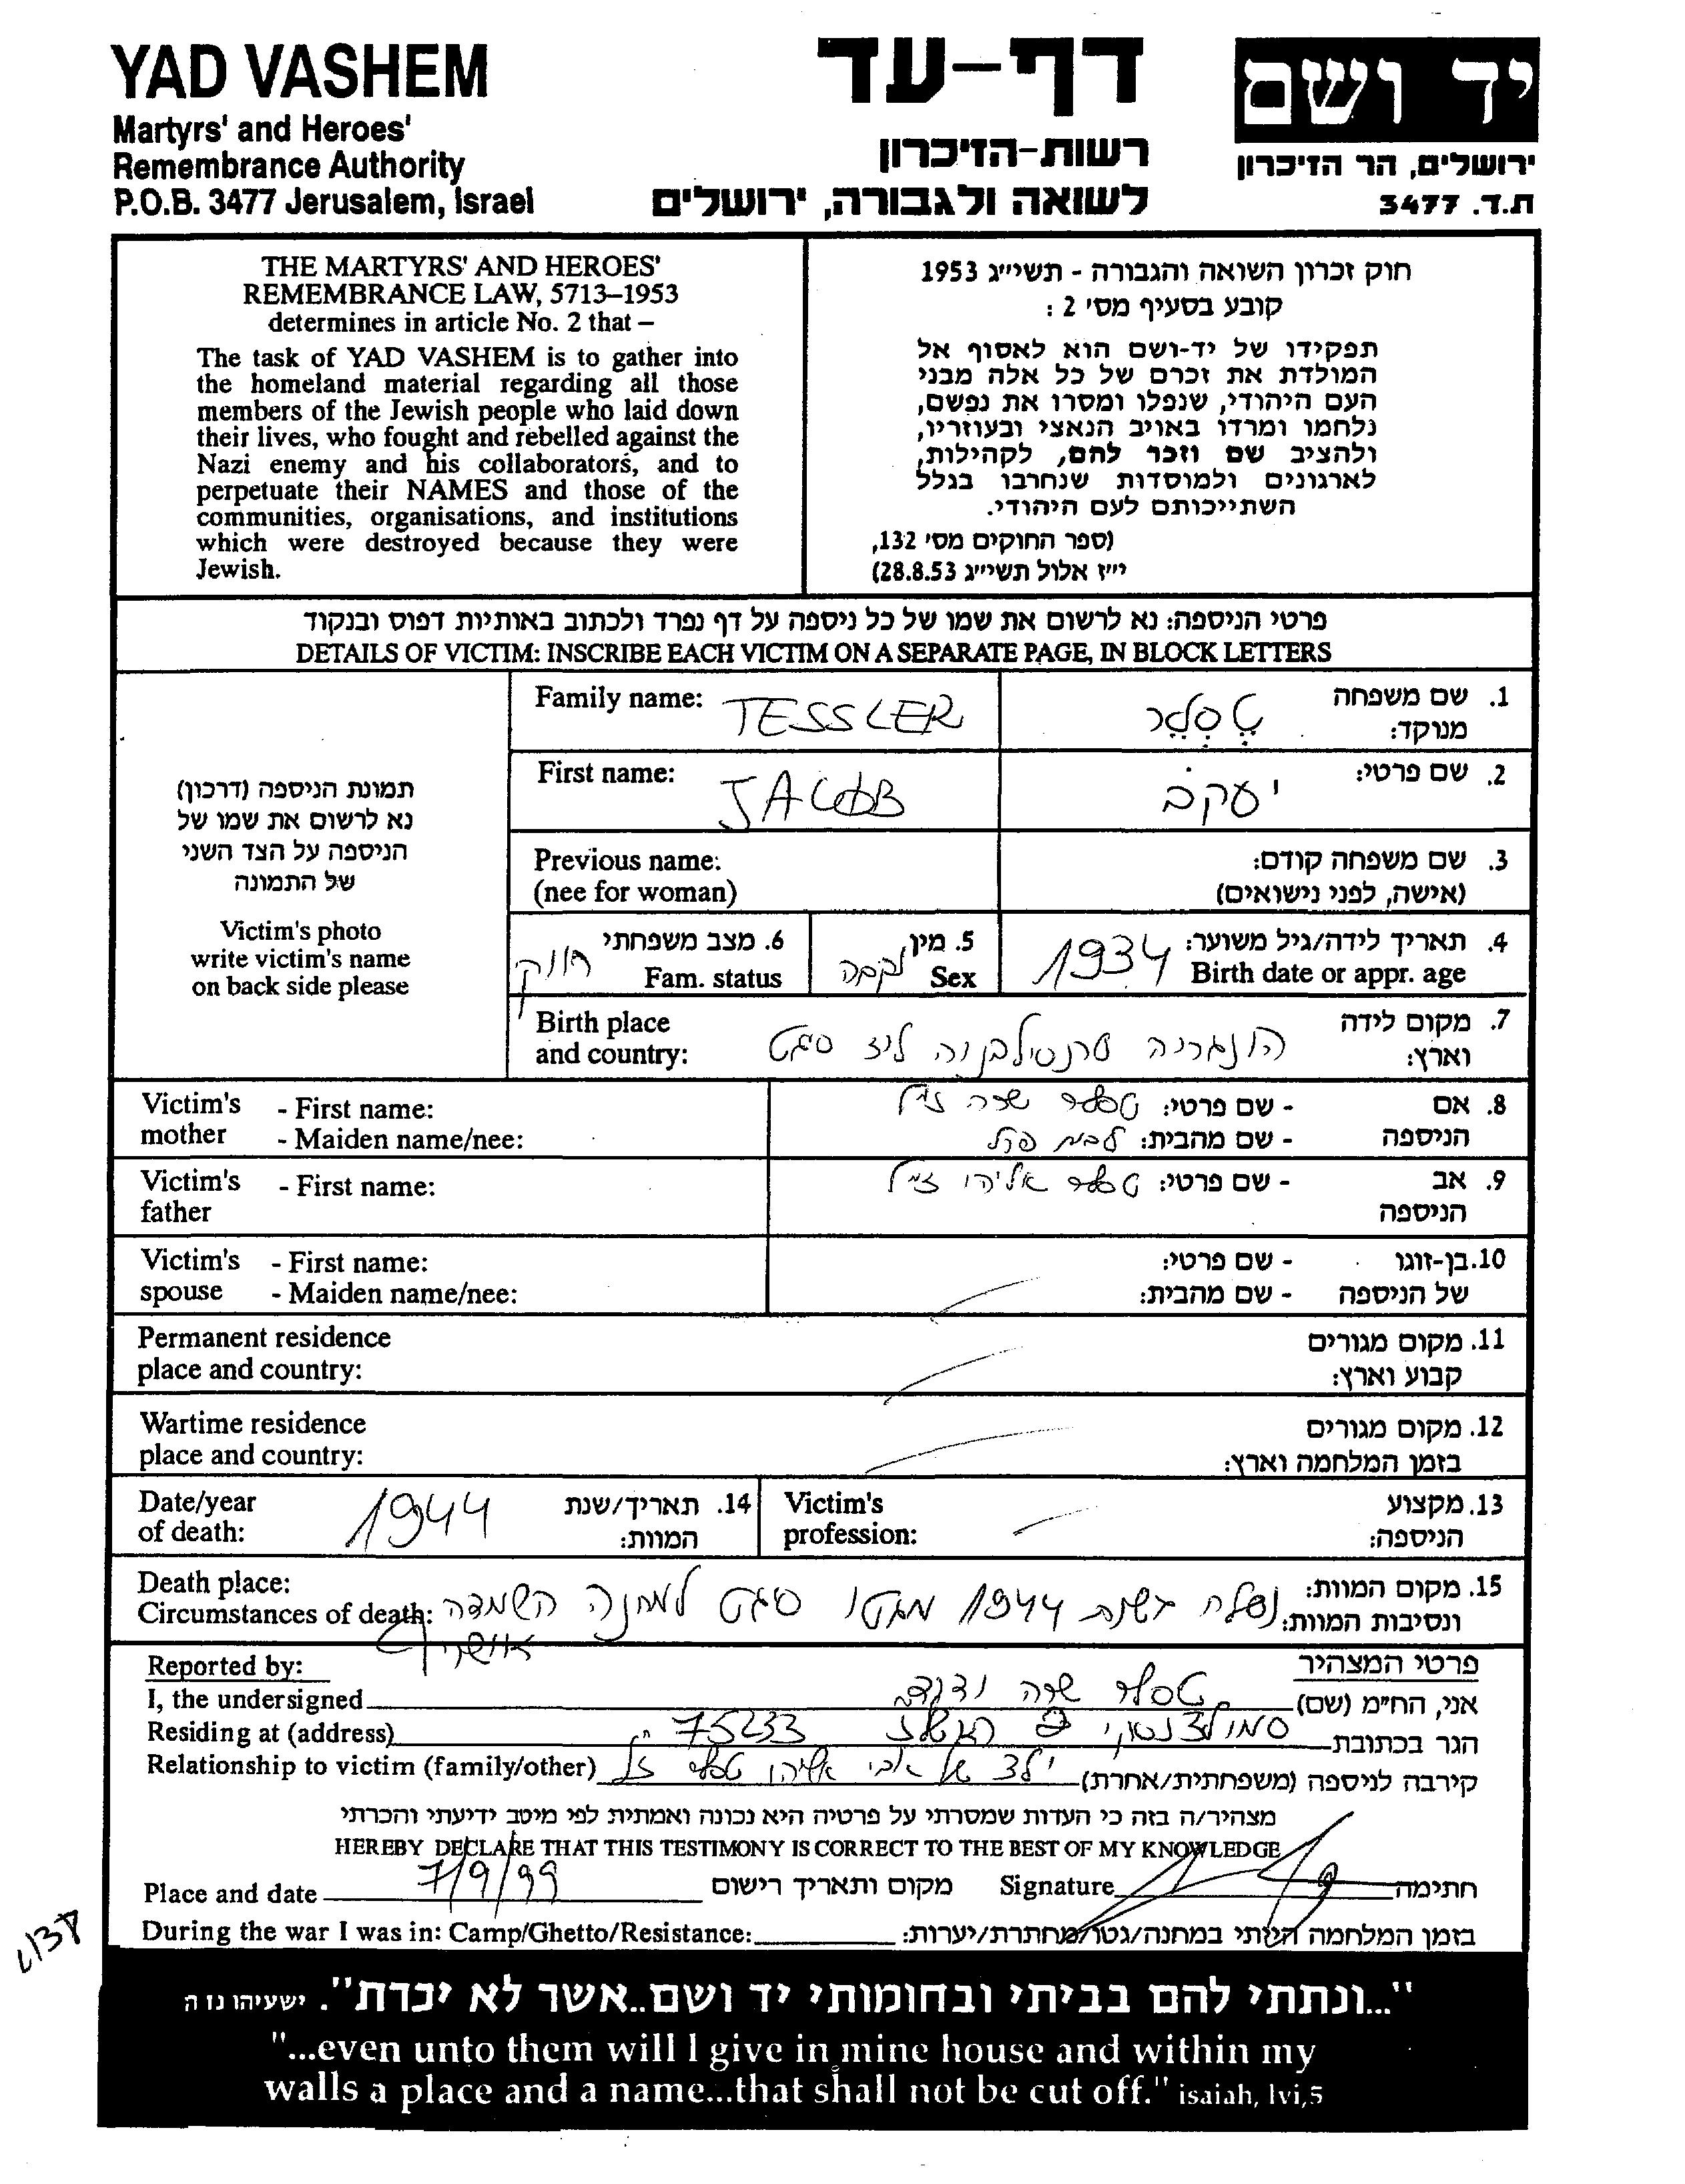 YAD VASHEM
Martyrs' and Heroes'
Remembrance Authority
P.O.B. 3477 Jerusalem, Israel
דף-עד
רשות-הזיכרון
לשואה ולגבורה, ירושלים
יד ושם
ירושלים, הר הזיכרון
ת.ד. 3477
THE MARTYRS' AND HEROES'
REMEMBRANCE LAW, 5713–1953
determines in article No. 2 that –
The task of YAD VASHEM is to gather into
the homeland material regarding all those
members of the Jewish people who laid down
their lives, who fought and rebelled against the
Nazi enemy and his collaborators, and to
perpetuate their NAMES and those of the
communities, organisations, and institutions
which were destroyed because they were
Jewish.
חוק זכרון השואה והגבורה - תשי״ג 1953
קובע בסעיף מס' 2 :
תפקידו של יד-ושם הוא לאסוף אל
המולדת את זכרם של כל אלה מבני
העם היהודי, שנפלו ומסרו את נפשם,
נלחמו ומרדו באויב הנאצי ובעוזריו,
ולהציב שם וזכר להם, לקהילות,
לארגונים ולמוסדות שנחרבו בגלל
השתייכותם לעם היהודי.
(ספר החוקים מס' 132,
י״ז אלול תשי״ג 28.8.53)
פרטי הניספה: נא לרשום את שמו של כל ניספה על דף נפרד ולכתוב באותיות דפוס ובנקוד
DETAILS OF VICTIM: INSCRIBE EACH VICTIM ON A SEPARATE PAGE, IN BLOCK LETTERS
תמונת הניספה (דרכון)
נא לרשום את שמו של
הניספה על הצד השני
של התמונה
Victim's photo
write victim's name
on back side please
Family name: TESSLER
1. שם משפחה
מנוקד: טֶסְלֶר
First name: JACOB
2. שם פרטי: יעקב
Previous name:
(nee for woman)
3. שם משפחה קודם:
(אישה, לפני נישואים)
4. תאריך לידה/גיל משוער: 1934
Birth date or appr. age
5. מין
Sex
6. מצב משפחתי
Fam. status
Birth place
and country:
7. מקום לידה
וארץ: הונגריה טרנסילבניה ליד סיגט
Victim's - First name:
mother - Maiden name/nee:
8. אם - שם פרטי: טסלר שרה ז״ל
הניספה - שם מהבית: לבית פרל
Victim's - First name:
father
9. אב - שם פרטי: טסלר אליהו ז״ל
הניספה
Victim's - First name:
spouse - Maiden name/nee:
10. בן-זוגו - שם פרטי:
של הניספה - שם מהבית:
Permanent residence
place and country:
11. מקום מגורים
קבוע וארץ:
Wartime residence
place and country:
12. מקום מגורים
בזמן המלחמה וארץ:
Date/year
of death: 1944
14. תאריך/שנת
המוות:
Victim's
profession:
13. מקצוע
הניספה:
Death place:
Circumstances of death:
15. מקום המוות:
ונסיבות המוות: נשלח בשנת 1944 מגטו סיגט למחנה השמדה
אושויץ
Reported by:
פרטי המצהיר
I, the undersigned
אני, הח״מ (שם) טסלר שרה
Residing at (address)
הגר בכתובת 75233
Relationship to victim (family/other)
קירבה לניספה (משפחתית/אחרת) ילד של אבי אליהו טסלר ז״ל
מצהיר/ה בזה כי העדות שמסרתי על פרטיה היא נכונה ואמתית לפי מיטב ידיעתי והכרתי
HEREBY DECLARE THAT THIS TESTIMONY IS CORRECT TO THE BEST OF MY KNOWLEDGE
Place and date 7/9/99 מקום ותאריך רישום Signature חתימה
During the war I was in: Camp/Ghetto/Resistance:
בזמן המלחמה הייתי במחנה/גטו/מחתרת/יערות:
"...ונתתי להם בביתי ובחומותי יד ושם..אשר לא יכרת". ישעיהו נו ה
"...even unto them will I give in mine house and within my
walls a place and a name...that shall not be cut off." isaiah, lvi,5